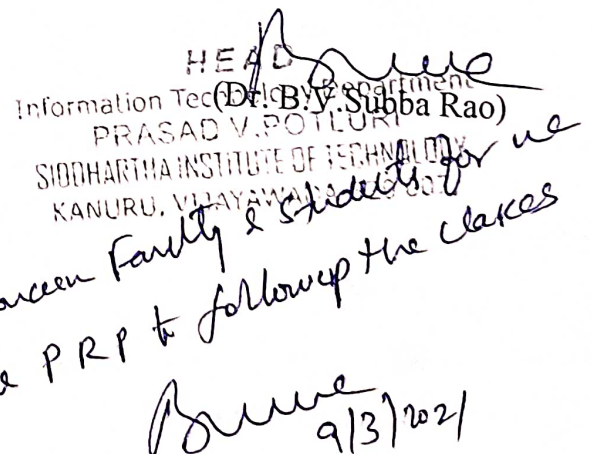 HEAD
Information Technology Department
(Dr. B.V.Subba Rao)
PRASAD V.POTLURI
SIDDHARTHA INSTITUTE OF TECHNOLOGY
KANURU, VIJAYAWADA
Faculty & Students for
PRP to followup the classes
9/3/2021